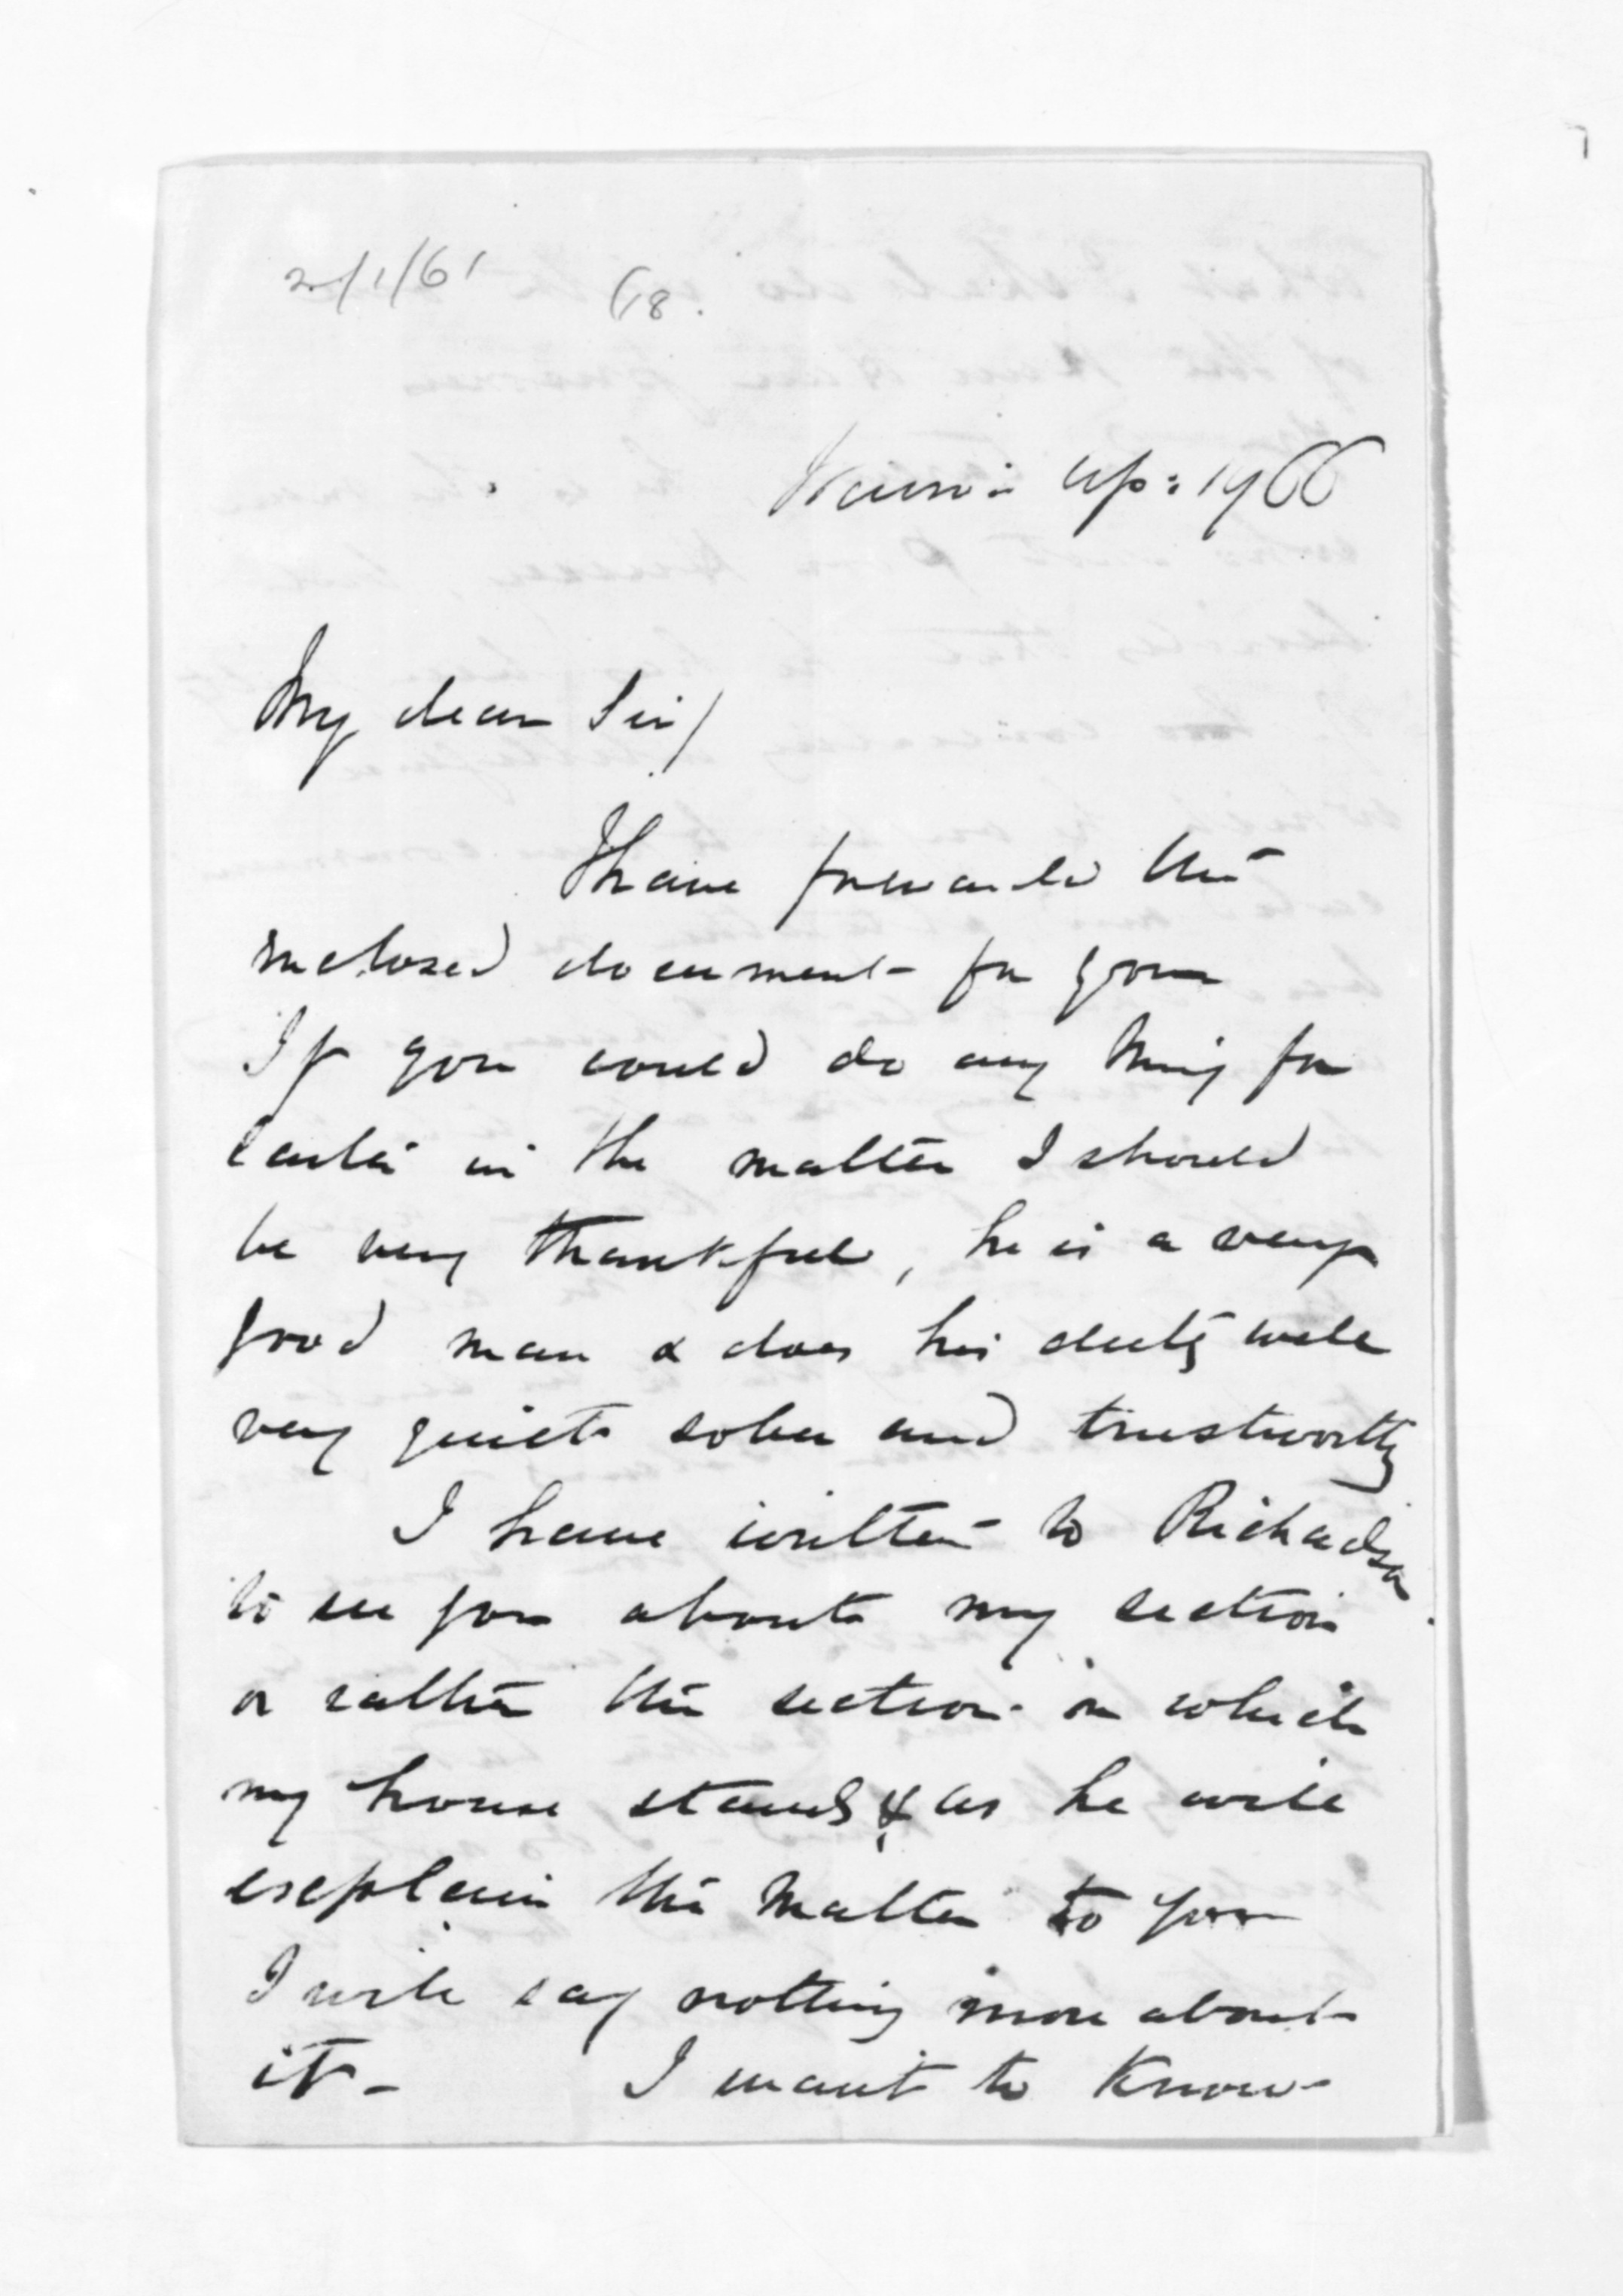 2/1/61 (18.
Wairoa Ap: 1966
My dear Sir/
I have forwarded the
enclosed document for you
If you could do any thing for
in the matter I should
be very thankful, he is a very
good man & does his duty well
very quiet sober and trustworthy
I have written to Richardson
to see you about my section
or rather the section on which
my house stands & as he will
explain the matter to you
I will say nothing more about
it - I want to know